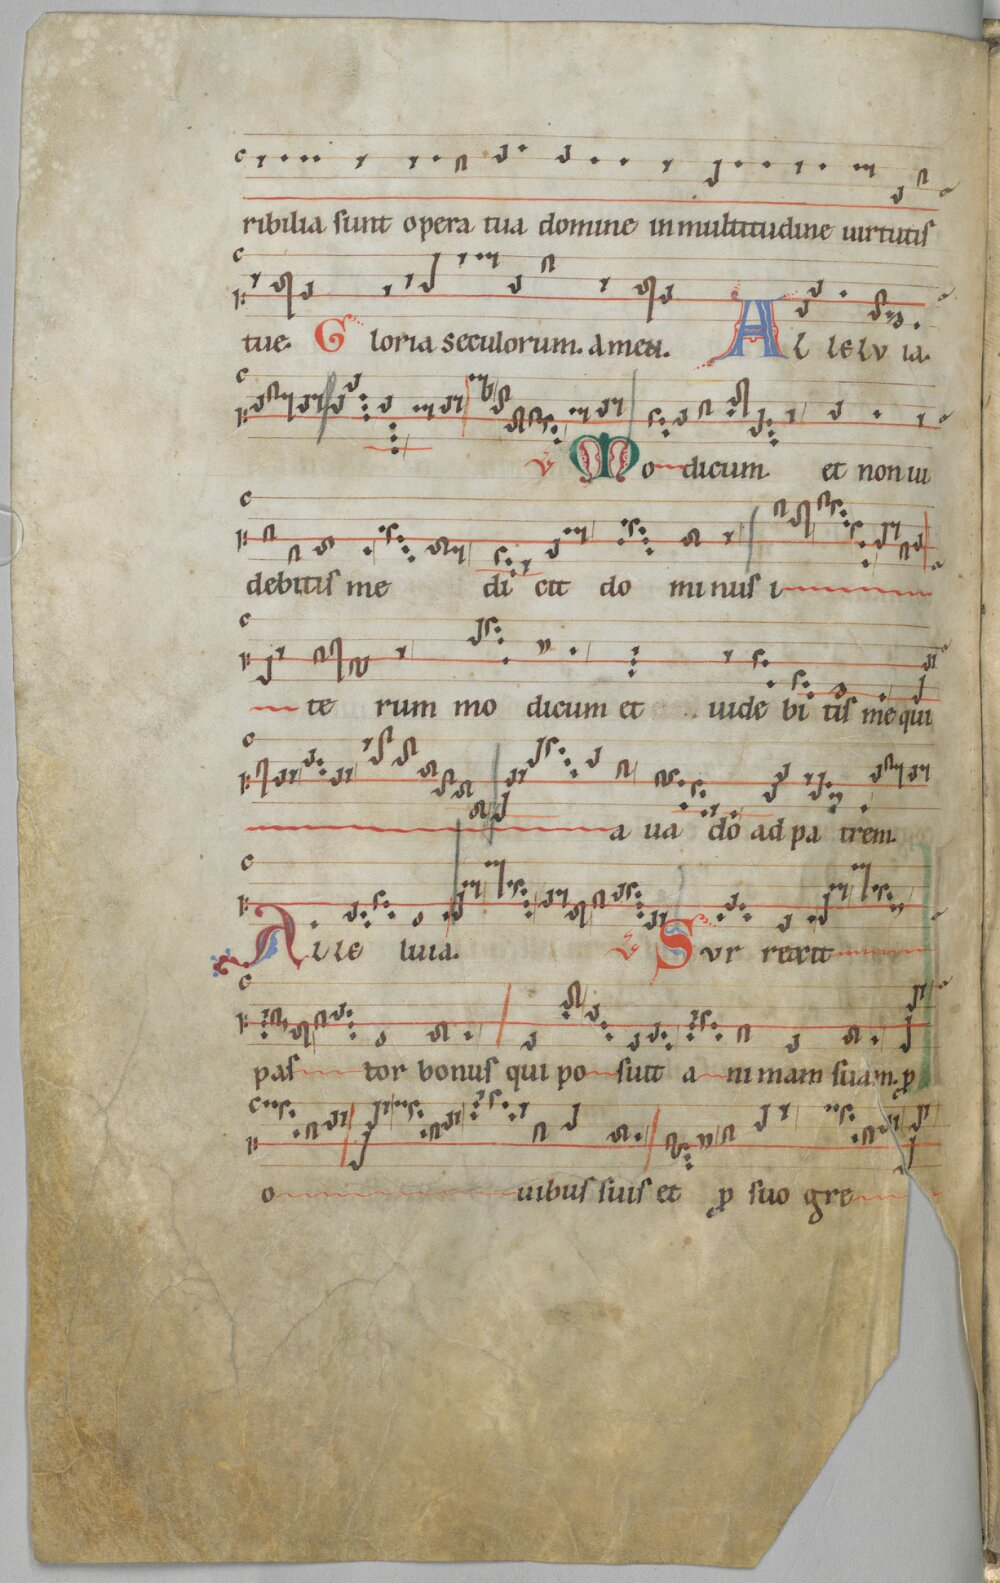 ribilia sunt opera tua domine in multitudine uirtutis
tue. Gloria seculorum. amen. Al le lu ia.
℣ Mo dicum et non ui
debitis me di cit do mi nus i
te rum mo dicum et uide bi tis me qui
a ua do ad pa trem.
Al le luia. ℣ Sur rexit
pas tor bonus qui po suit a ni mam suam. ꝑ
o uibus suis et ꝑ suo gre